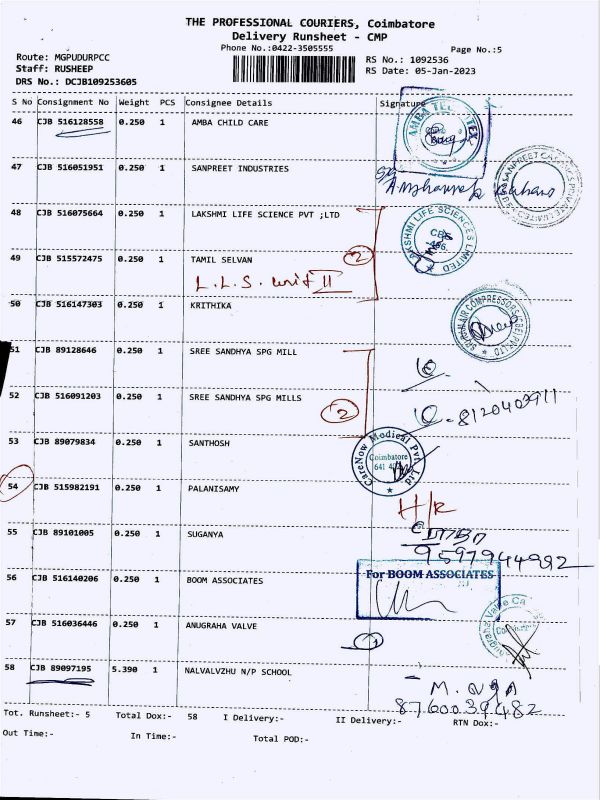 THE PROFESSIONAL COURIERS, Coimbatore
Delivery Runsheet - CMP
Phone No.:0422-3505555 Page No.:5
Route: MGPUDURPCC RS No.: 1092536
Staff: RUSHEEP RS Date: 05-Jan-2023
DRS No.: DCJB109253605
S No Consignment No Weight PCS Consignee Details Signature
46 CJB 516128558 0.250 1 AMBA CHILD CARE
47 CJB 516051951 0.250 1 SANPREET INDUSTRIES
48 CJB 516075664 0.250 1 LAKSHMI LIFE SCIENCE PVT ;LTD
LAKSHMI LIFE SCIENCES LIMITED
49 CJB 515572475 0.250 1 TAMIL SELVAN 2
L.L.S. unit II
50 CJB 516147303 0.250 1 KRITHIKA
51 CJB 89128646 0.250 1 SREE SANDHYA SPG MILL
52 CJB 516091203 0.250 1 SREE SANDHYA SPG MILLS
2
53 CJB 89079834 0.250 1 SANTHOSH
CareNow Medical Pvt. Ltd
Coimbatore
54 CJB 515982191 0.250 1 PALANISAMY
H/R
55 CJB 89101005 0.250 1 SUGANYA
9597944992
56 CJB 516140206 0.250 1 BOOM ASSOCIATES
For BOOM ASSOCIATES
57 CJB 516036446 0.250 1 ANUGRAHA VALVE
1
58 CJB 89097195 5.390 1 NALVALVZHU N/P SCHOOL
Tot. Runsheet:- 5 Total Dox:- 58 I Delivery:- II Delivery:- RTN Dox:-
Out Time:- In Time:- Total POD:-